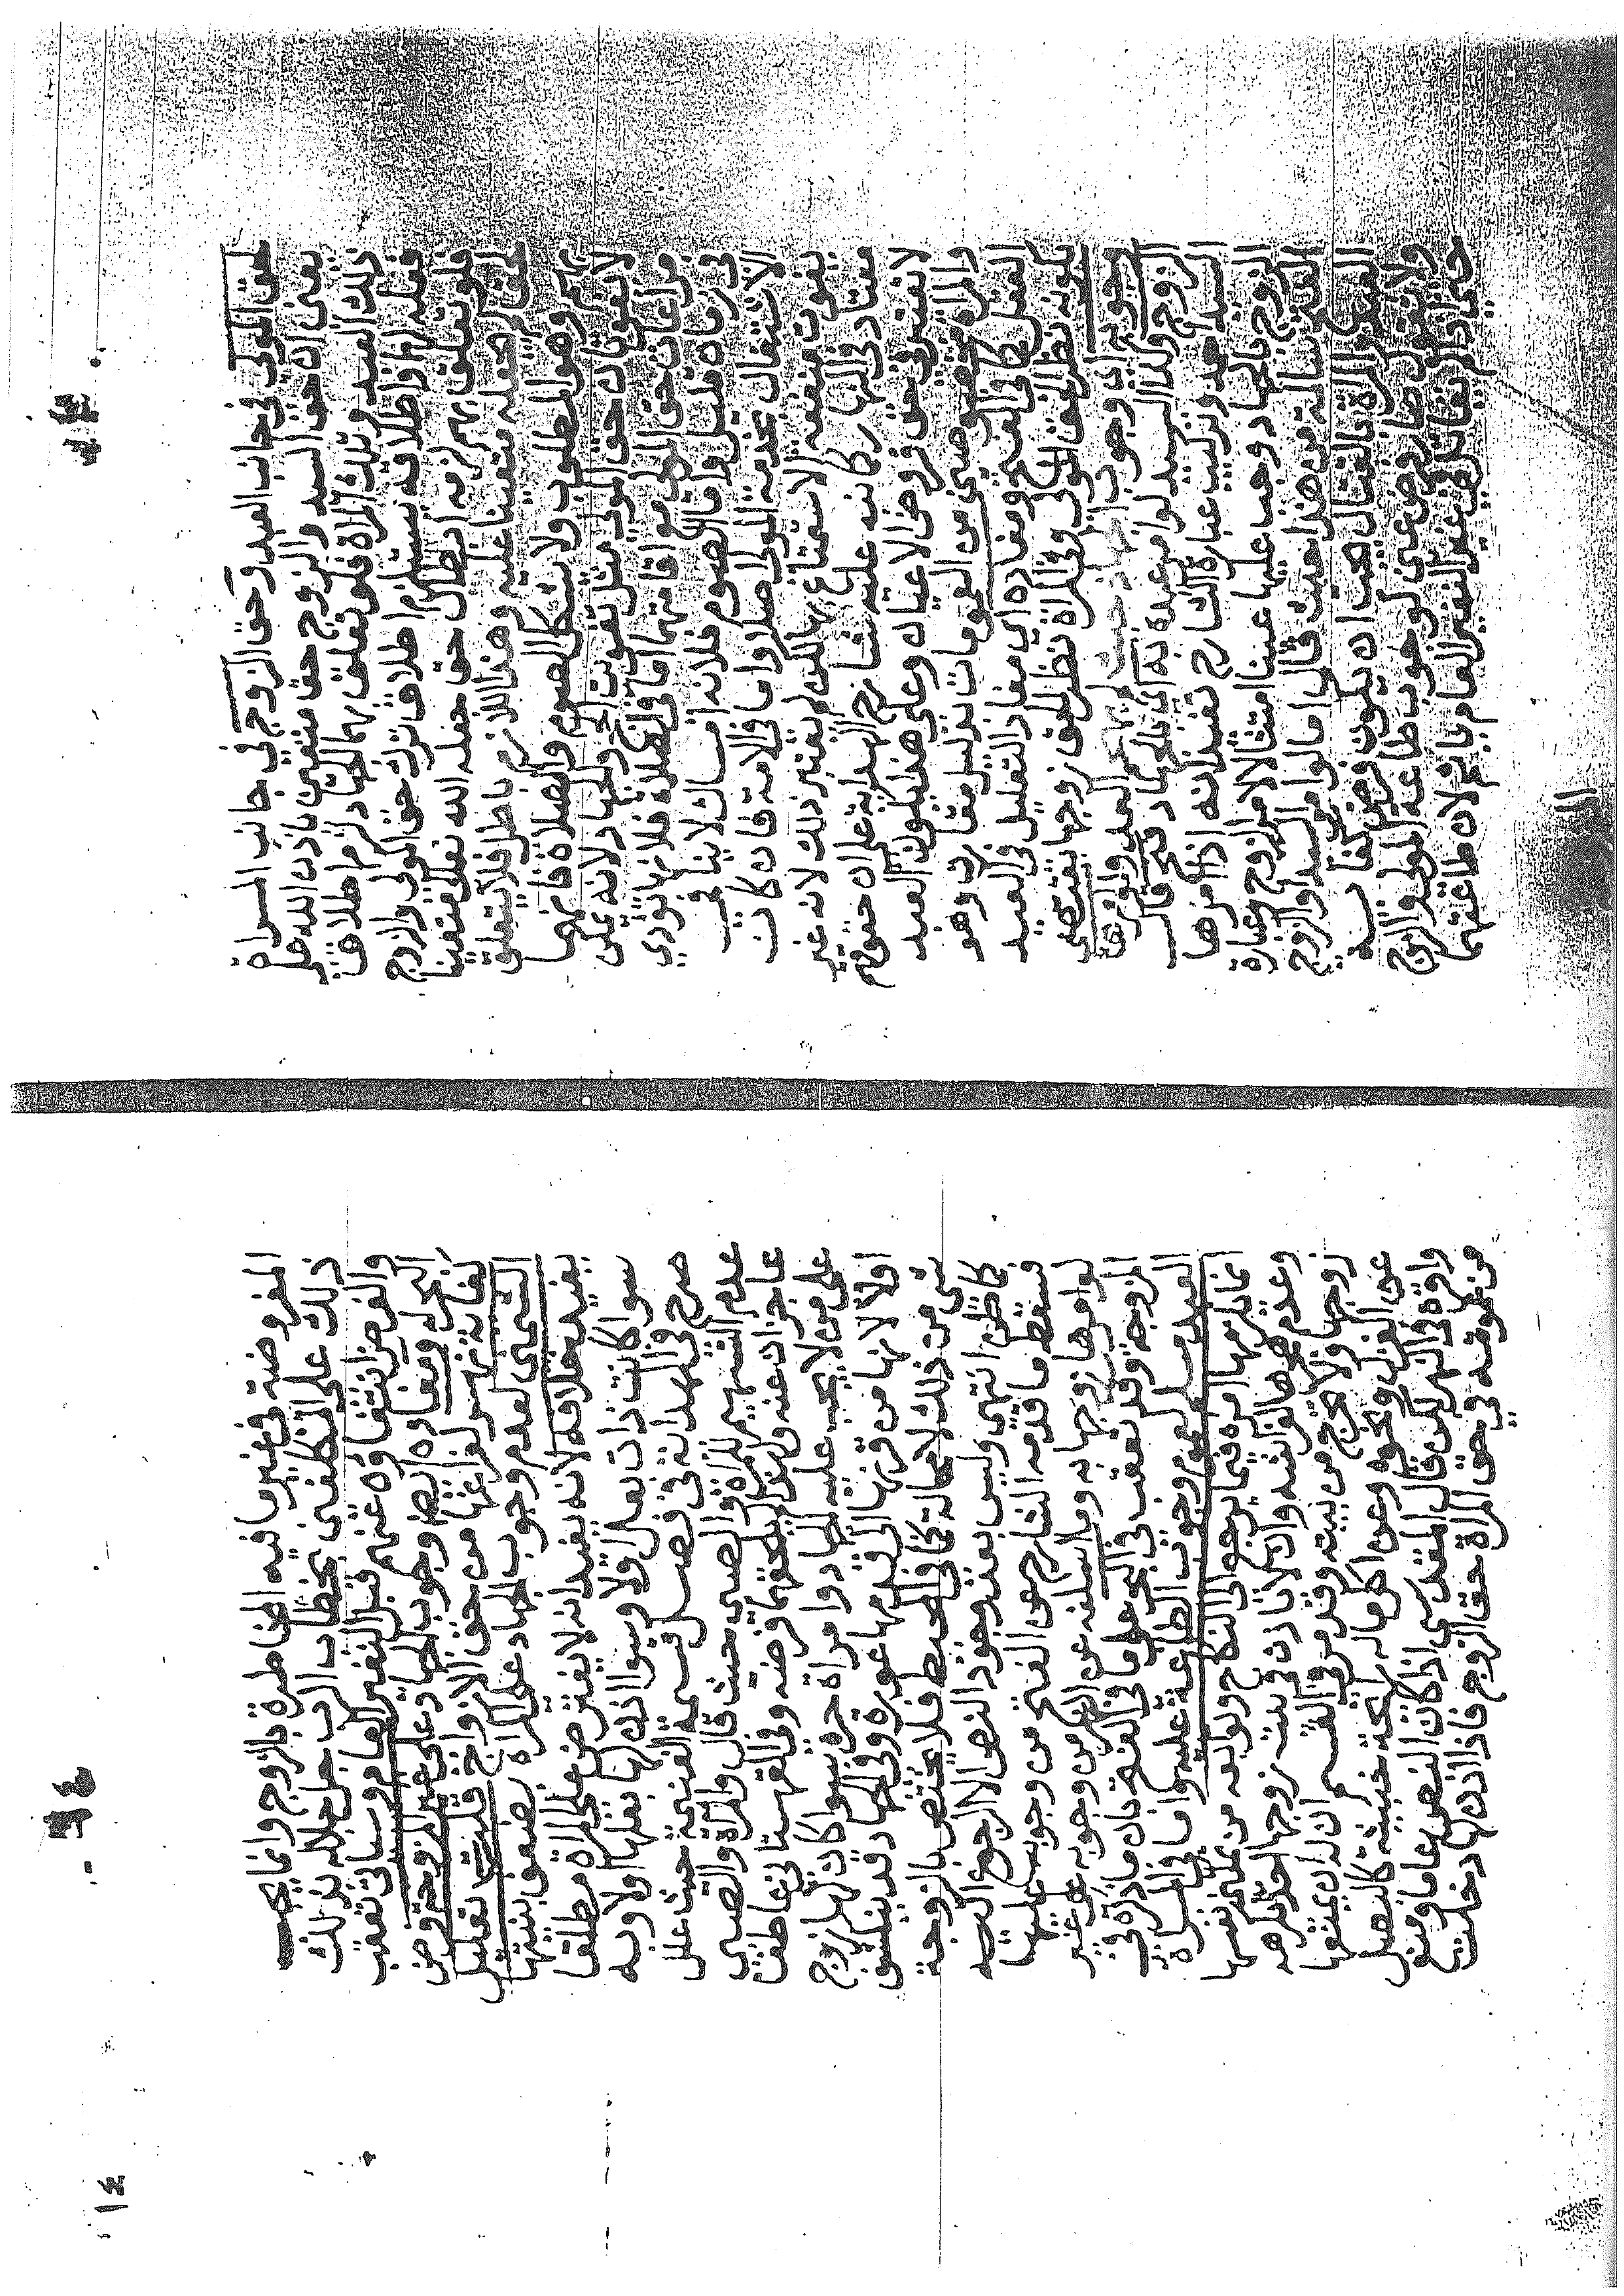 لحق المولى في جانب العبد وحق الزوج في جانب المراة
يعني ان حق السيد والزوج حق متعين باذن الله على
ذلك العبد وتلك المراة فلو تعلق بهما الجهاد لزم اطلاق
فعله لهما واطلاقه يستلزم اطلاق ترك حق المولى والزوج
فلو تعلق بهم لزمه ابطال حق جعله الله تعالى متعينا
لحق لم يجعله متعينا عليه وهذا اللازم باطل فلا يتعلق
بهم وهو المطلوب ولا يشكل الصوم والصلاة فانهما
لا يفوتان حق المولى مثل تفويت الحج والجهاد لانه يمكن
مراعات حق المولى مع اقامتهما اما في الصلاة فلانها تؤدي
في زمان قليل واما الصوم فلانه امساك لا ينافي
الاشتغال بخدمة المولى اصلا واما في الامة فان كان
يفوت منفعة الاستمتاع بها لكن لم يعتبر ذلك لانه غير
معتاد في النهار كانبه عليه شارح الهداية على ان حقوقهم
لا تعتبر في حق فروض الاعيان وعلى هذا يكون العبد
والمراة مخصوصين من العمومات بدليل مقارن وهو
العقل كما في الفتح ومفاده اي مفاد التعليل في العبد
بكونه نظر الحق المولى وفي المراة نظر الحق زوجها يقتضي
وجوبه اي وجوب العبد لو امرها
الزوج وكذا السيد لو امر عبده به اي بالجهاد فتح قال
السيد احمد وتركيب عبارة الشارح تفيد انه اذا امرها
الزوج بالجهاد وجب عليها عينا امتثالا لامر الزوج وعبارة
الفتح سالمة من هذا حيث قال اما لو امر السيد او الزوج
العبد والمراة بالقتال يجب ان يكون فرض كفاية
ولا نقول صار فرض عين لوجوب طاعة المولى والزوج
حتى اذا لم يقاتل في غير النفير العام ياثم لان طاعتهما
المفروضة في غير ما فيه المخاطرة بالروح وانما يجب
ذلك على المكلفين بخطاب الرب جل جلاله بذلك
والفرض انتفاؤه عنهم قبل النفير العام وسياتي تعقب
البحر له ومفاده ايضا وجوب الجهاد على غير المزوجة فرض
كفاية نهر لفراغها من حق الازواج قلت تعليل
الشمني لعدم وجوب الجهاد على المراة بضعف بنيتها
يفيد خلافه لانه يفيد انه لا يفترض على المراة مطلقا
سوا كانت ذات بعل او لا وسوا اذن لها بعلها او لا وبه
صرح في الهداية في فصل قسمة الغنيمة حيث علل
عدم السهم للمراة والصبي حيث قال والمراة والصبي
عاجزان عنه ولهذا لم يلحقهما فرضه وفي القهستاني عاطفا
على من لا يجب عليه الجهاد وامراة حرة سوا كان لها زوج
او لا لانها من قرنها الى قدمها عورة وفي الجهاد قد ينكشف
شي من ذلك لا محالة كما في المحيط فلا يختص بالزوجة
كما ظن انتهى وليس بعد وجود النص الا الرجوع اليه
فسقط ما قدمه الشارح عن الفتح من وجوبه عليها
لو امرها زوجها به وما اسلفه عن النهر من وجوبه على غير
المزوجة وقد تعقب في البحر على ما في الفتح بان ما ذكره في
العبد مسلم لعموم وجوب الطاعة عليه واما في المراة
انما يلزمها امره فيما يرجع الى النكاح وتوابعه من تمكين نفسها
وعدم هجرها لفراشه وان لا تاذن في بيت زوجها احدا يكرهه
زوجها ولا تخرج من بيته وقد مر في القسم ان له ان يمنعها
عن الغزل ونحوه وعن اكل ماله رائحة خبيثة كالبصل
واقره في النهر لكن قال المقدسي اذا كان النص عاما ومنع
من عمومه في حق المراة حق الزوج فاذا اذن لها دخلت
١٤